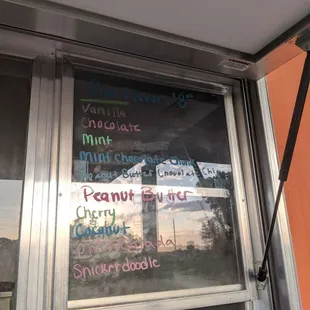 Flavors
Vanilla
Chocolate
Mint
Mint chocolate Chunk
Peanut Butter Chocolate Chip
Peanut Butter
Cherry
Coconut
Snickerdoodle